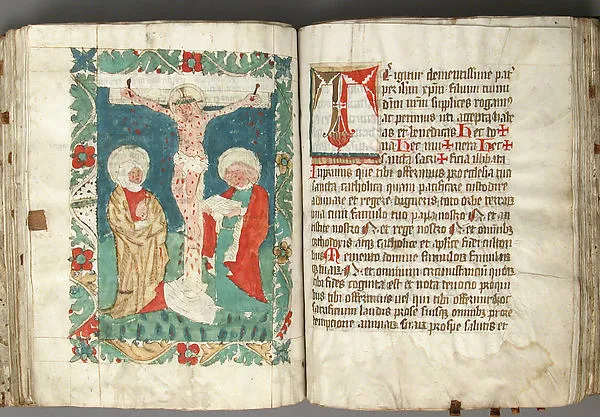 T Eigitur clementissime pat
per ihm xpm filium tuum
dnm nrm suplices rogam
ac petimus uti accepta habe
as et benedicas Hec do✝
na Hec mu✝nera Hec✝
sancta sacri✝ficia illibata
Inprimis que tibi offerimus pro ecclesia tua
sancta catholica quam pacificare custodire
adunare et regere digneris toto orbe terrarum
una cum famulo tuo papa nostro N et an
nostro N et rege nostro N et omnibus
orthodoxis atq catholice et aplice fidei cultori
bus Memento domine famulorum famularum
tuarum N et omnium circumstancium quorum
tibi fides cognita est et nota devocio pro qui
bus tibi offerimus vel qui tibi offerunt hoc
sacrificium laudis pro se suisq omnibus pro re
dempcione animarum suarum pro spe salutis et